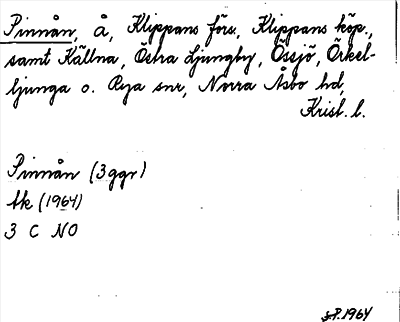 Pinnån, å, Klippans förs, Klippans köp.,
samt Källna, Östra Ljungby, Össjö, Örkel-
ljunga o. Rya snr, Norra Åsbo hd,
Krist. l.
Pinnån (3 ggr)
tk (1964)
3 C NO
P. 1964